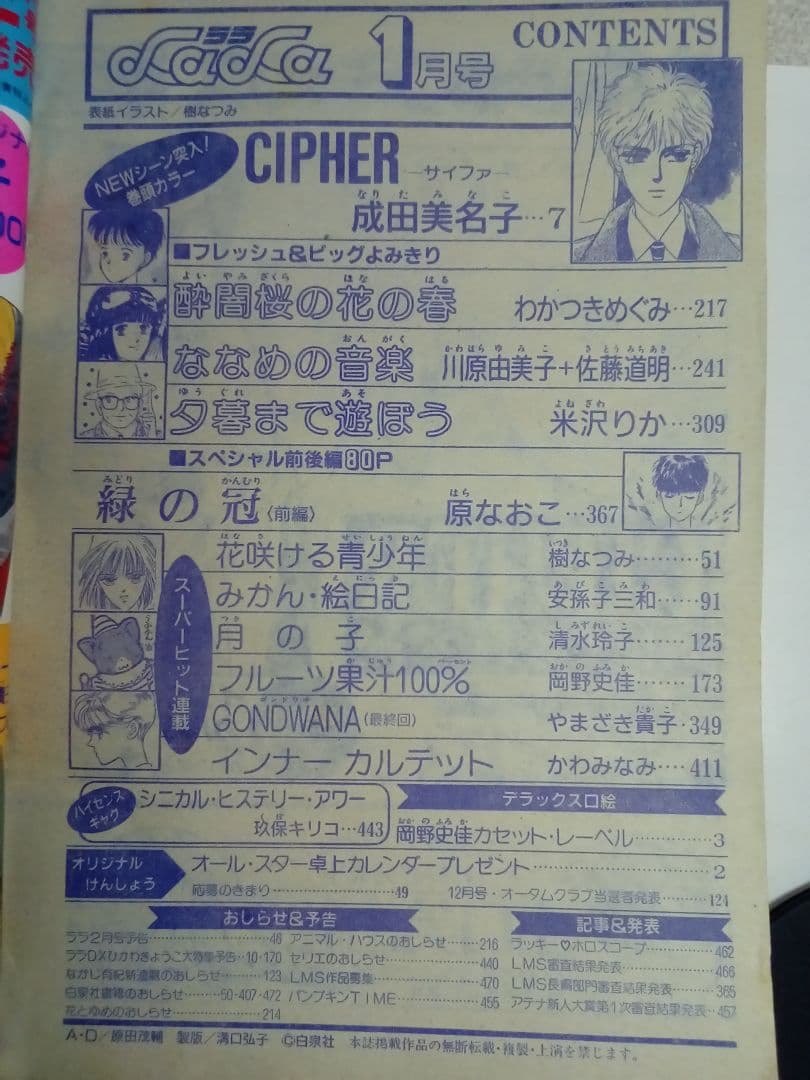 LaLa ララ 1月号 CONTENTS
表紙イラスト／樹なつみ
NEWシーン突入！
巻頭カラー
CIPHER —サイファ—
成田美名子…7
なりたみなこ
■フレッシュ&ビッグよみきり
よいやみざくら はな はる
酔闇桜の花の春 わかつきめぐみ…217
おんがく かわはらゆみこ さとうみちあき
ななめの音楽 川原由美子+佐藤道明…241
ゆうぐれ あそ よねざわ
夕暮まで遊ぼう 米沢りか…309
■スペシャル前後編80P
みどり かんむり はら
緑の冠〈前編〉 原なおこ…367
スーパーヒット連載
はなさ せいしょうねん いつき
花咲ける青少年 樹なつみ………51
えにっき あびこみわ
みかん・絵日記 安孫子三和……91
つき こ しみずれいこ
月の子 清水玲子……125
かじゅう パーセント おかのふみか
フルーツ果汁100% 岡野史佳……173
ゴンドワナ たかこ
GONDWANA（最終回） やまざき貴子・349
インナー カルテット かわみなみ…411
ハイセンス
ギャグ
シニカル・ヒステリー・アワー
くぼ
玖保キリコ…443
デラックス口絵
おかのふみか
岡野史佳カセット・レーベル……………3
オリジナル
けんしょう
オール・スター卓上カレンダープレゼント……………2
応募のきまり……………49 12月号・オータムクラブ当選者発表………124
おしらせ&予告
ララ2月号予告……………46
ララDXひかわきょうこ大特集予告・10・170
なかじ有紀新連載のおしらせ………123
白泉社書籍のおしらせ……50・407・472
花とゆめのおしらせ……………214
アニマル・ハウスのおしらせ………216
セリエのおしらせ……………440
LMS作品募集……………470
パンプキンTIME……………455
記事&発表
ラッキー♡ホロスコープ……………462
LMS審査結果発表……………466
LMS長編部門審査結果発表………365
アテナ新人大賞第1次審査結果発表…457
A・D／原田茂輔 製版／溝口弘子 ©白泉社 本誌掲載作品の無断転載・複製・上演を禁じます。